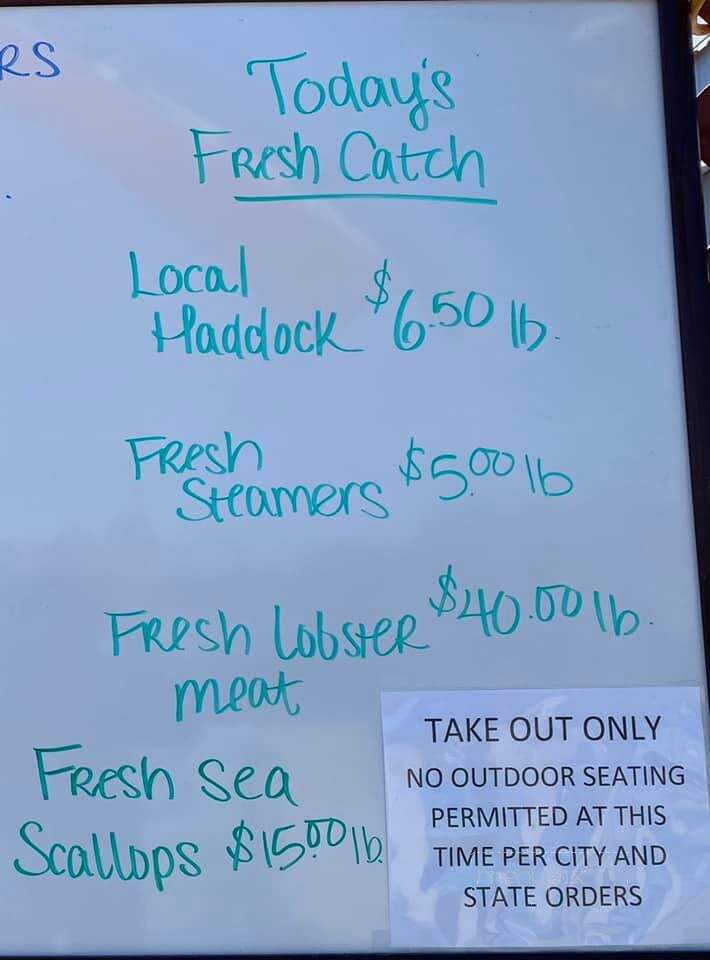 RS
Today's
Fresh Catch
Local
Haddock $6.50 lb.
Fresh
Steamers $5.00 lb
Fresh Lobster $40.00 lb.
meat
Fresh Sea
Scallops $15.00 lb
TAKE OUT ONLY
NO OUTDOOR SEATING
PERMITTED AT THIS
TIME PER CITY AND
STATE ORDERS